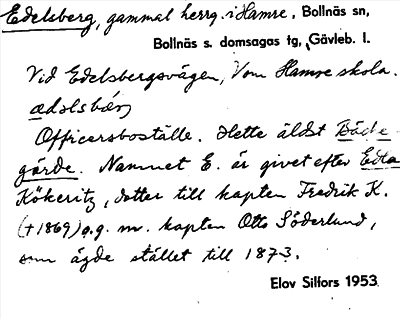 Edelsberg, gammal herrg. i Hamre. Bollnäs sn,
Bollnäs s. domsagas tg, Gävleb. l.
Vid Edelsbergsvägen, V om Hamre skola.
ædəlsbærj
Officersboställe. Hette äldst Bäcke-
gärde. Namnet E. är givet efter Edla
Kökeritz, dotter till kapten Fredrik K.
(†1869) o. g. m. kapten Otto Söderlund,
som ägde stället till 1873.
Elov Silfors 1953